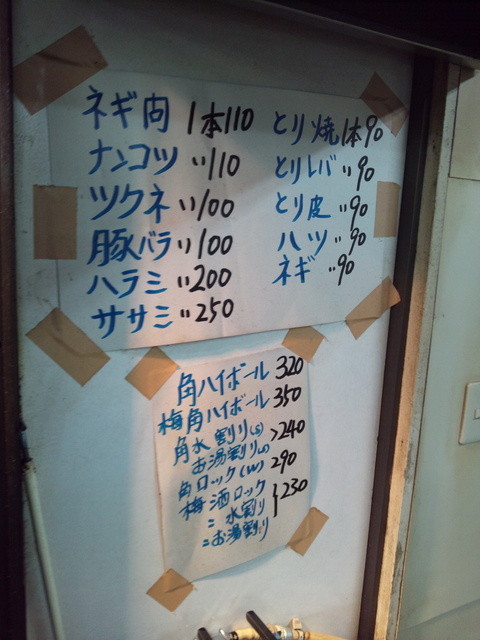 ネギ肉 1本110
ナンコツ 〃110
ツクネ 〃100
豚バラ 〃100
ハラミ 〃200
ササミ 〃250
とり焼 1本90
とりレバ 〃90
とり皮 〃90
ハツ 〃90
ネギ 〃90
角ハイボール 320
梅角ハイボール 350
角水割り(S) >240
お湯割り(S)
角ロック(W) 290
梅酒ロック }230
〃 水割り
〃お湯割り